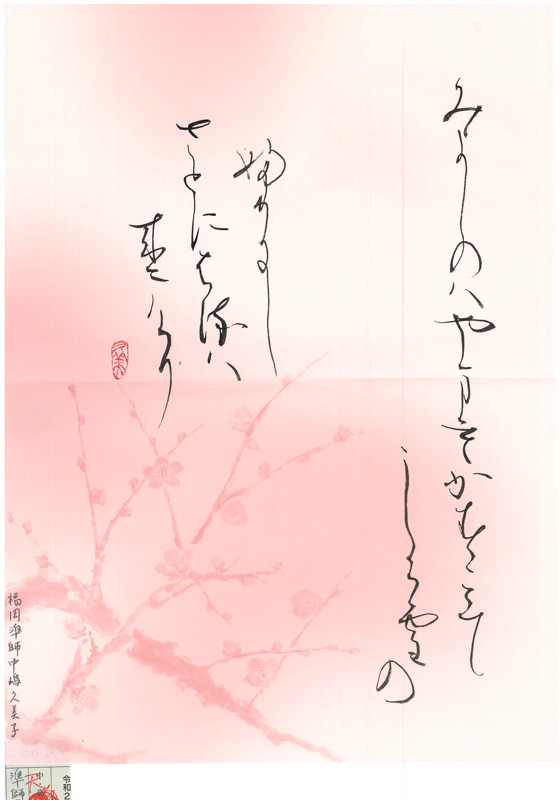 みよしのハやまもかすミて
しら雪の
ふりにし
さとにはるハ
来にけり
福岡準師中嶋久美子
準師
令和2